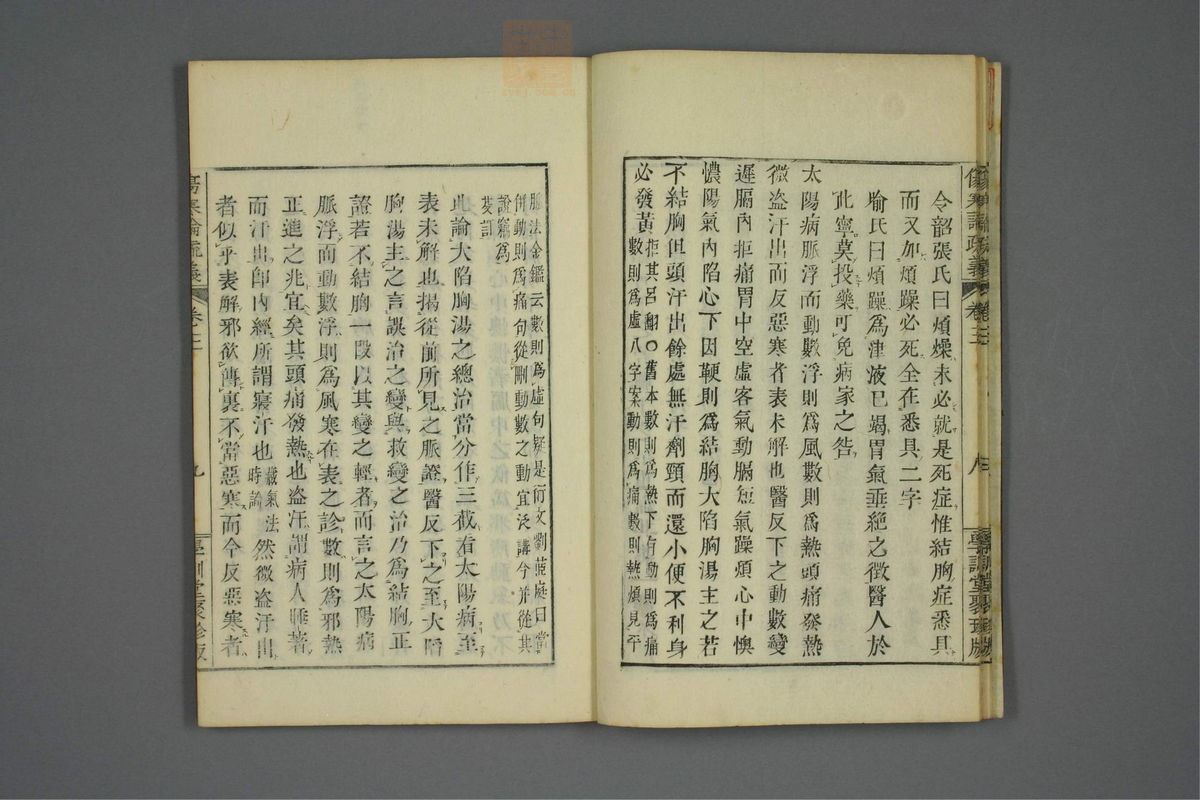 傷寒論疏義 卷三 八 學訓堂聚珍版
令韶張氏曰煩燥未必就是死症惟結胸症悉具
而又加煩躁必死全在悉具二字
喻氏曰煩躁爲津液已竭胃氣垂絕之徵醫人於
此寧莫投藥可免病家之咎
太陽病脈浮而動數浮則爲風數則爲熱頭痛發熱
微盜汗出而反惡寒者表未解也醫反下之動數變
遲膈內拒痛胃中空虛客氣動膈短氣躁煩心中懊
憹陽氣內陷心下因鞕則爲結胸大陷胸湯主之若
不結胸但頭汗出餘處無汗劑頸而還小便不利身
必發黃
拒其呂翻〇舊本數則爲熱下有動則爲痛
數則爲虛八字案動則爲痛數則熱煩見平
脈法金鑑云數則爲虛句疑是衍文劉茝庭曰當
併動則爲痛句從刪動數之動宜泛講今並從其
說竊爲
芟訂
此論大陷胸湯之總治當分作三截看太陽病至
表未解也揭從前所見之脈證醫反下之至大陷
胸湯主之言誤治之變與救變之治乃爲結胸正
證若不結胸一段以其變之輕者而言之太陽病
脈浮而動數浮則爲風寒在表之診數則爲邪熱
正進之兆宜矣其頭痛發熱也盜汗謂病人睡著
而汗出卽內經所謂寢汗也
藏氣法
時論
然微盜汗出
者似乎表解邪欲傳裏不當惡寒而今反惡寒者
傷寒論疏義 卷三 九 學訓堂聚珍版